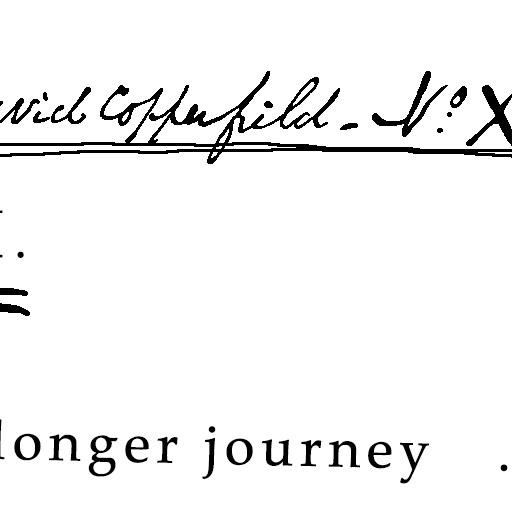 avid Copperfield - No. X
I.
longer journey .